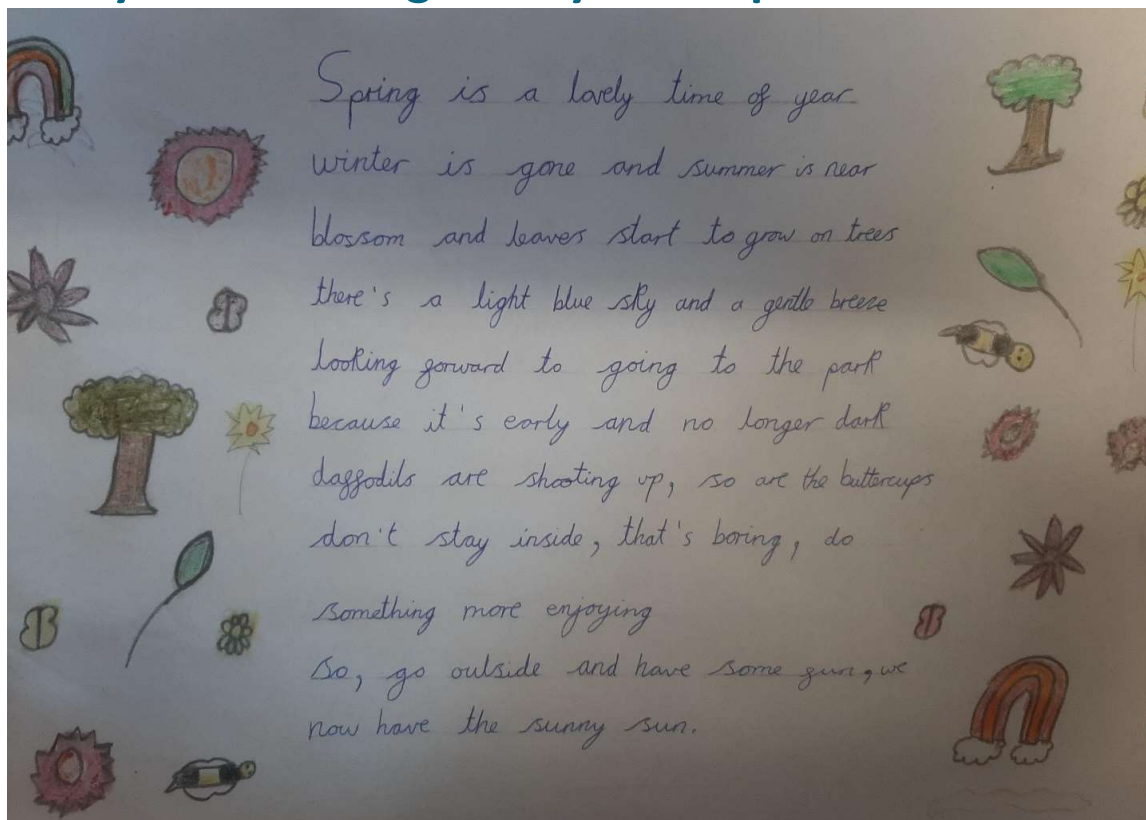 Spring is a lovely time of year
winter is gone and summer is near
blossom and leaves start to grow on trees
there's a light blue sky and a gentle breeze
looking forward to going to the park
because it's early and no longer dark
daffodils are shooting up, so are the buttercups
don't stay inside, that's boring, do
something more enjoying
so, go outside and have some fun, we
now have the sunny sun.